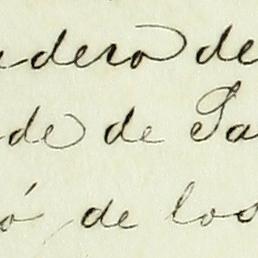 dero de
de de Sa
ó de los